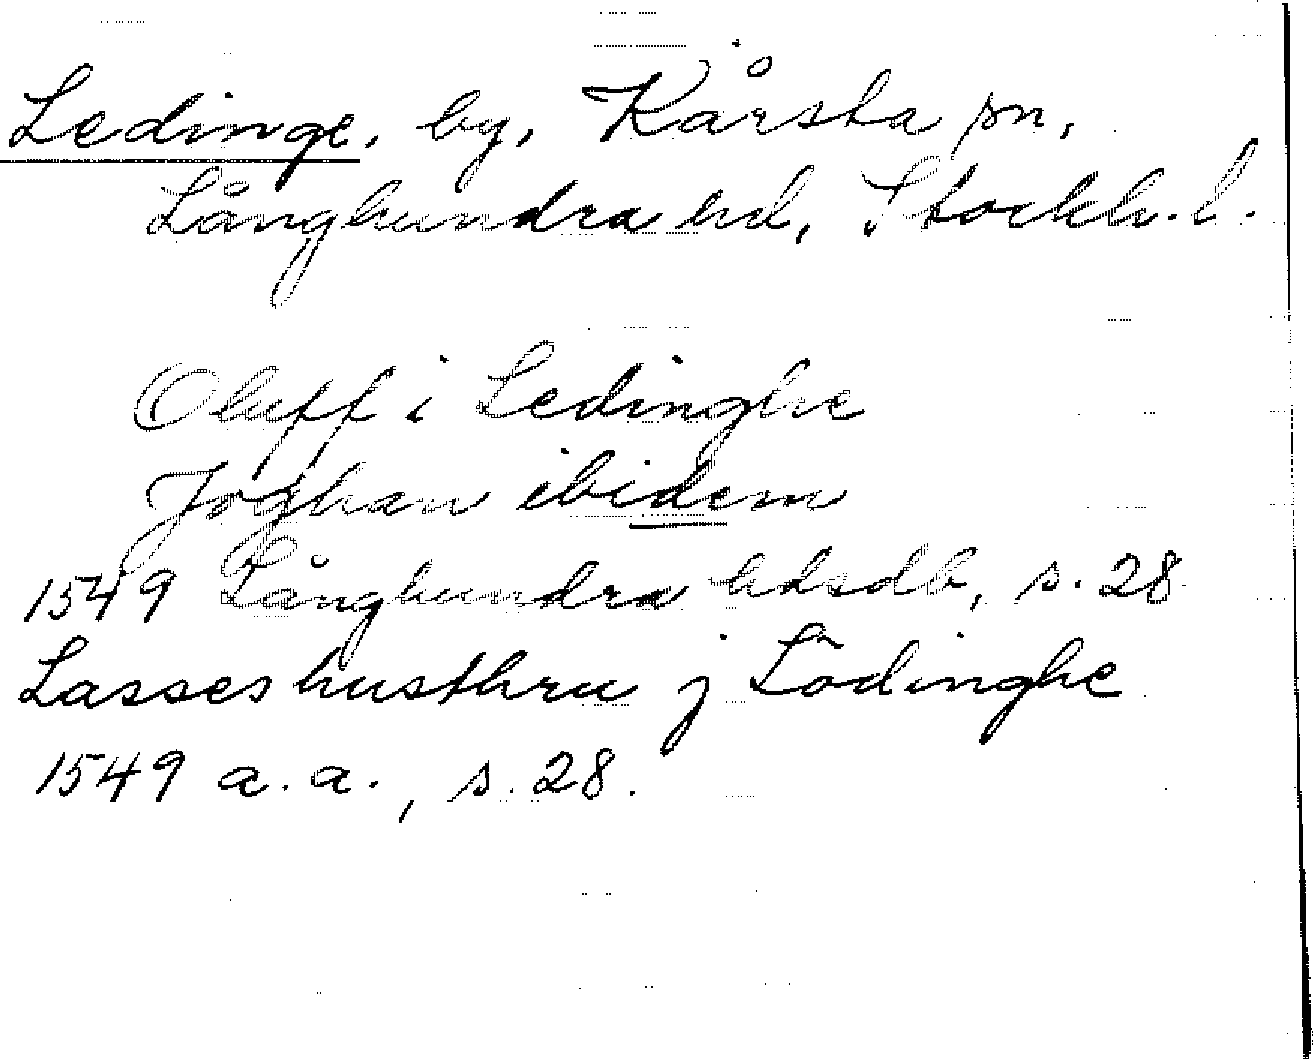 Ledinge, by, Kårsta sn,
Långhundra hd, Stockh. l.
Oleff i Ledinghe
Joghan ibidem
1549 Långhundra hdsdb, s. 28
Lasses husthru j Lödinghe
1549 a. a., s. 28.